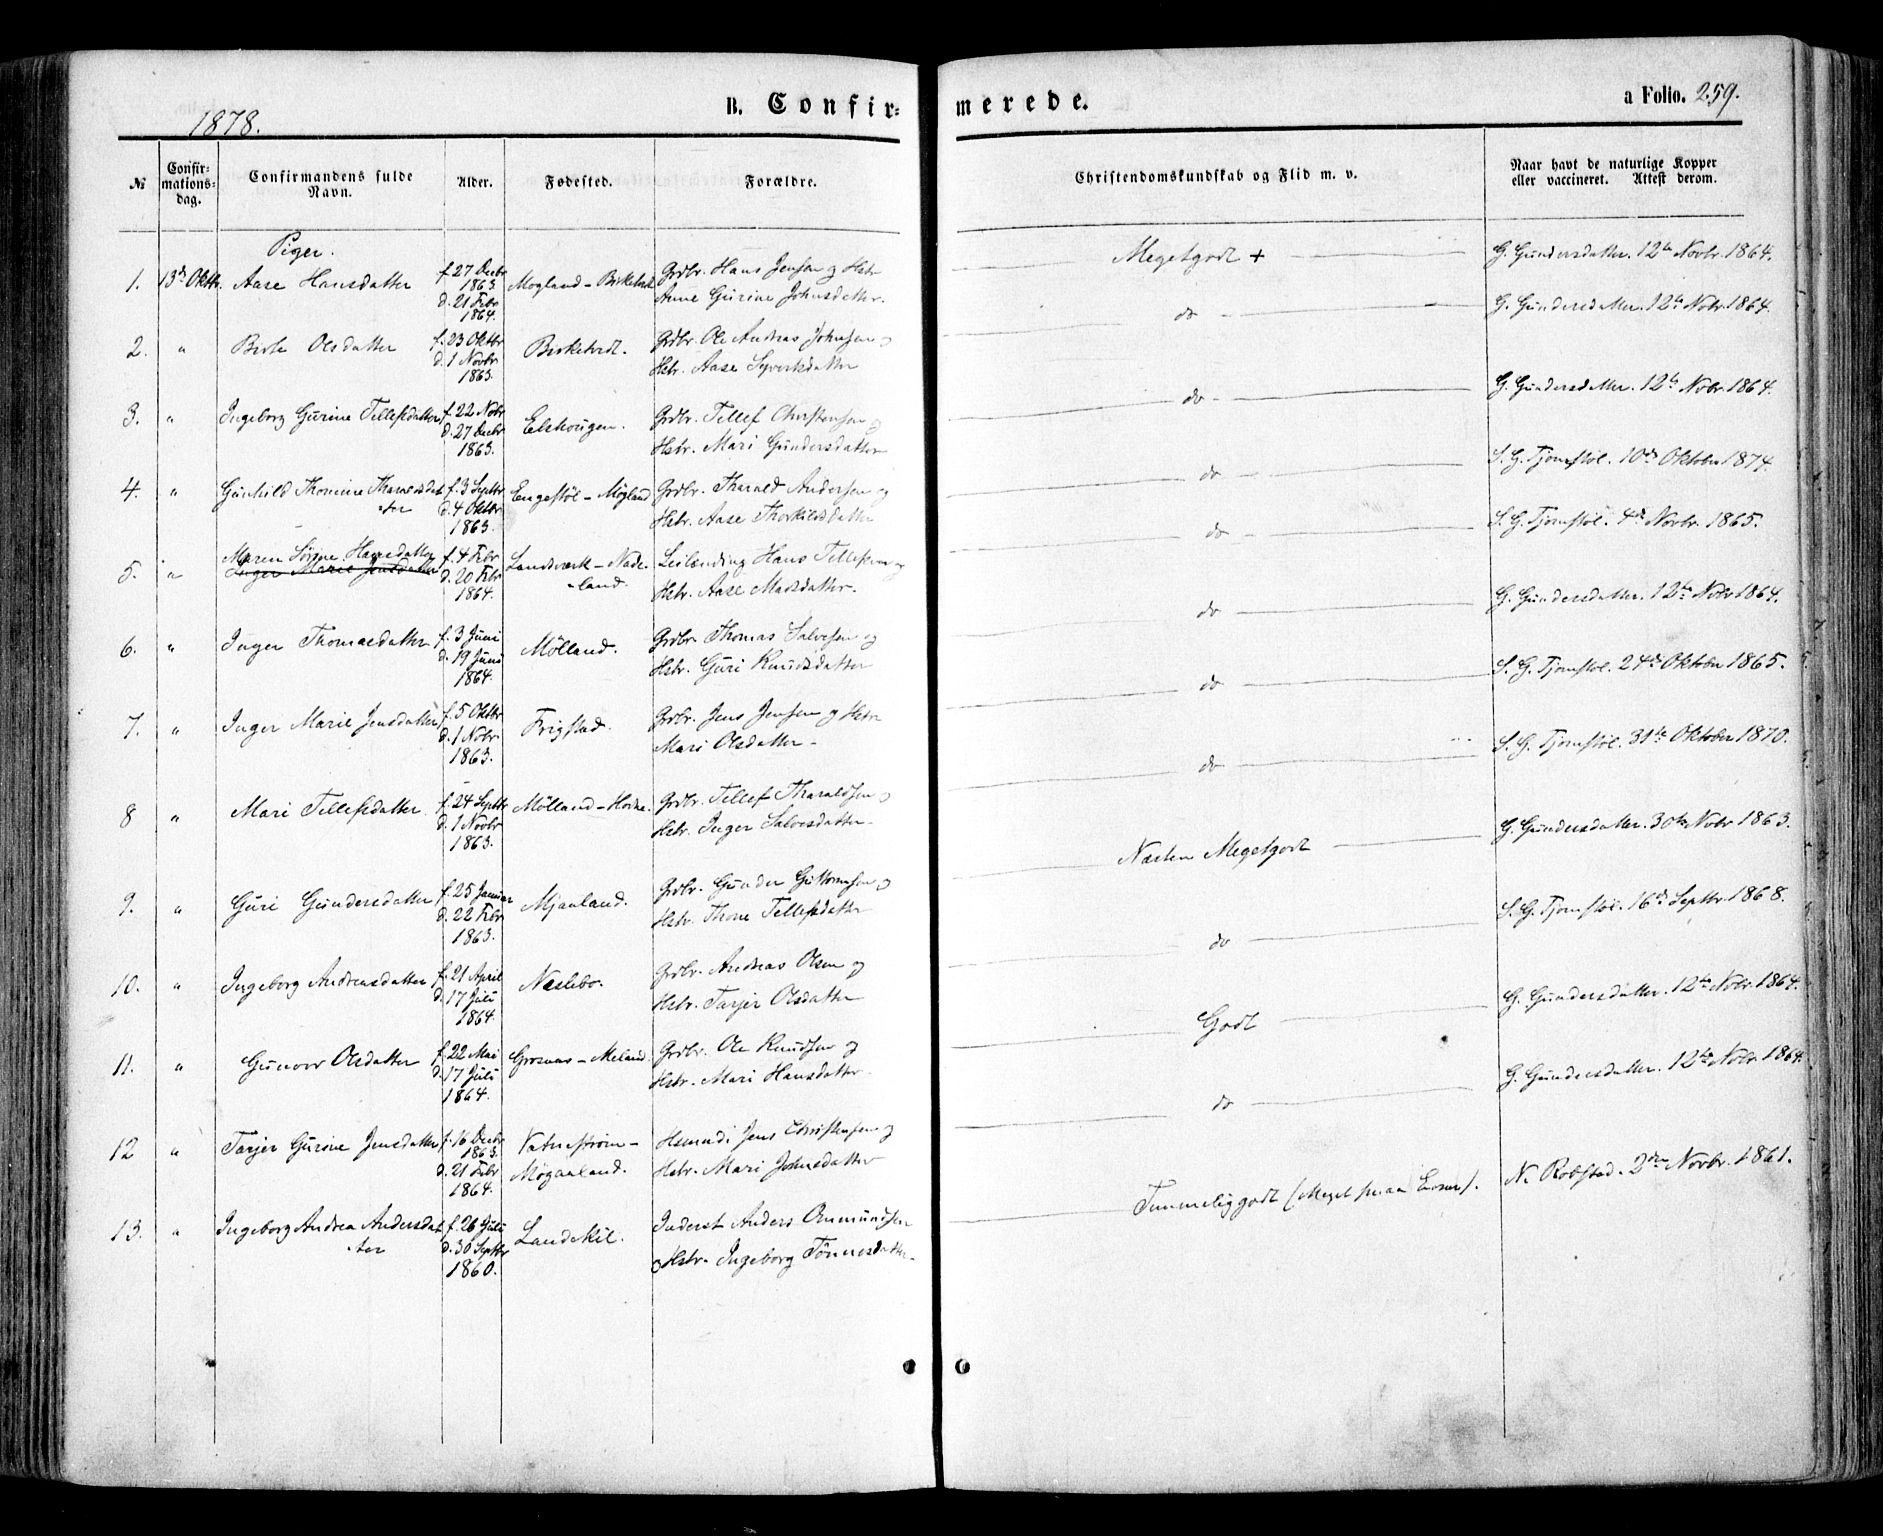 1878.
B. Confir-
merede.
a Folio. 259.
№
Confir-
mations-
dag.
Confirmandens fulde
Navn.
Alder.
Fødested.
Forældre.
Christendomskundskab og Flid m. v.
Naar havt de naturlige Kopper
eller vaccineret. Attest derom.
Piger.
1. 13de Oktbr. Aase Hansdatter f. 27 Decbr 1863 d. 21 Febr 1864. Mogland - Birketvedt Grdbr. Hans Jensen og Hstr Anne Gurine Johnsdatter. Megetgodt + G. Gundersdatter. 12te Novbr. 1864.
2. " Berte Olsdatter f. 23 Oktbr d. 1 Novbr 1863. Birketvedt. Grdbr. Ole Andreas Johnsen og Hstr. Aase Syvertsdatter do G. Gundersdatter. 12te Nobr 1864.
3. " Ingeborg Gurine Tellefsdatter f. 22 Nobr d. 27 Decbr 1863. Elshougen. Grdbr. Tellef Christensen og Hstr. Mari Gundersdatter do G. Gundersdatter. 12te Nobr 1864.
4. " Gunhild Thomine Tharaldsdatter f. 3 Septbr d. 4 Oktbr 1863. Engestøl - Møgland Grdbr. Tharald Andersen og Hstr. Aase Thorkildsdatter do S. G. Tjomstøl. 10de Oktober 1874
5. " Maren Sørine Hansdatter Inger Marie Jensdatter f. 4 Febr d. 20 Febr 1864. Landsværk - Nadeland. Leilænding Hans Tellefsen og Hstr. Aase Madsdatter. do S. G. Tjomstøl. 4de Novbr. 1865.
6. " Inger Thomasdatter f. 3 Juni d. 19 Juni 1864. Mølland. Grdbr. Thomas Salvesen og Hstr. Guri Knudsdatter do G. Gundersdatter. 12te Nobr 1864.
7. " Inger Marie Jensdatter f. 5 Oktbr d. 1 Nobr 1863. Frigstad. Grdbr. Jens Jensen og Hstr Mari Olsdatter - do S. G. Tjomstøl. 24de Oktober 1865.
8 " Mari Tellefsdatter f. 24 Septbr d. 1 Novbr 1863. Mølland - Grdbr. Tellef Tharaldsen og Hstr. Inger Salvesdatter do S. G. Tjomstøl. 31te Oktober 1870.
9. " Guri Gundersdatter f. 25 Januar d. 22 Febr 1863. Mjaaland. Grdbr. Gunder Guttormsen og Hstr. Thone Tellefsdatter Næsten Megetgodt G. Gundersdatter. 30te Nobr 1863.
10. " Ingeborg Andreasdatter f. 21 April d. 17 Juli 1864. Næslebo. Grdbr. Andreas Olsen og Hstr. Tarjer Olsdatter do S. G. Tjomstøl. 16de Septbr. 1868.
11. " Gunvor Olsdatter f. 22 Mai d. 17 Juli 1864. Grosaas - Meland. Grdbr. Ole Knudsen og Hstr. Mari Hansdatter. Godt G. Gundersdatter. 12te Nobr. 1864.
12 " Tarjer Gurine Jensdatter f. 16 Decbr 1863. d. 21 Febr 1864. Vatnestrøm - Møgaaland. Jens Christensen og Hstr. Mari Johnsdatter do G. Gundersdatter. 12te Nobr. 1864.
13. " Ingeborg Andrea Andersdatter f. 26 Juli d. 30 Septbr 1860. Landskil. Inderst Anders Ommundsen og Hstr. Ingeborg Tønnesdatter. Temmeliggodt (Meget svag ). N. Robstad. 2den Novbr. 1861.